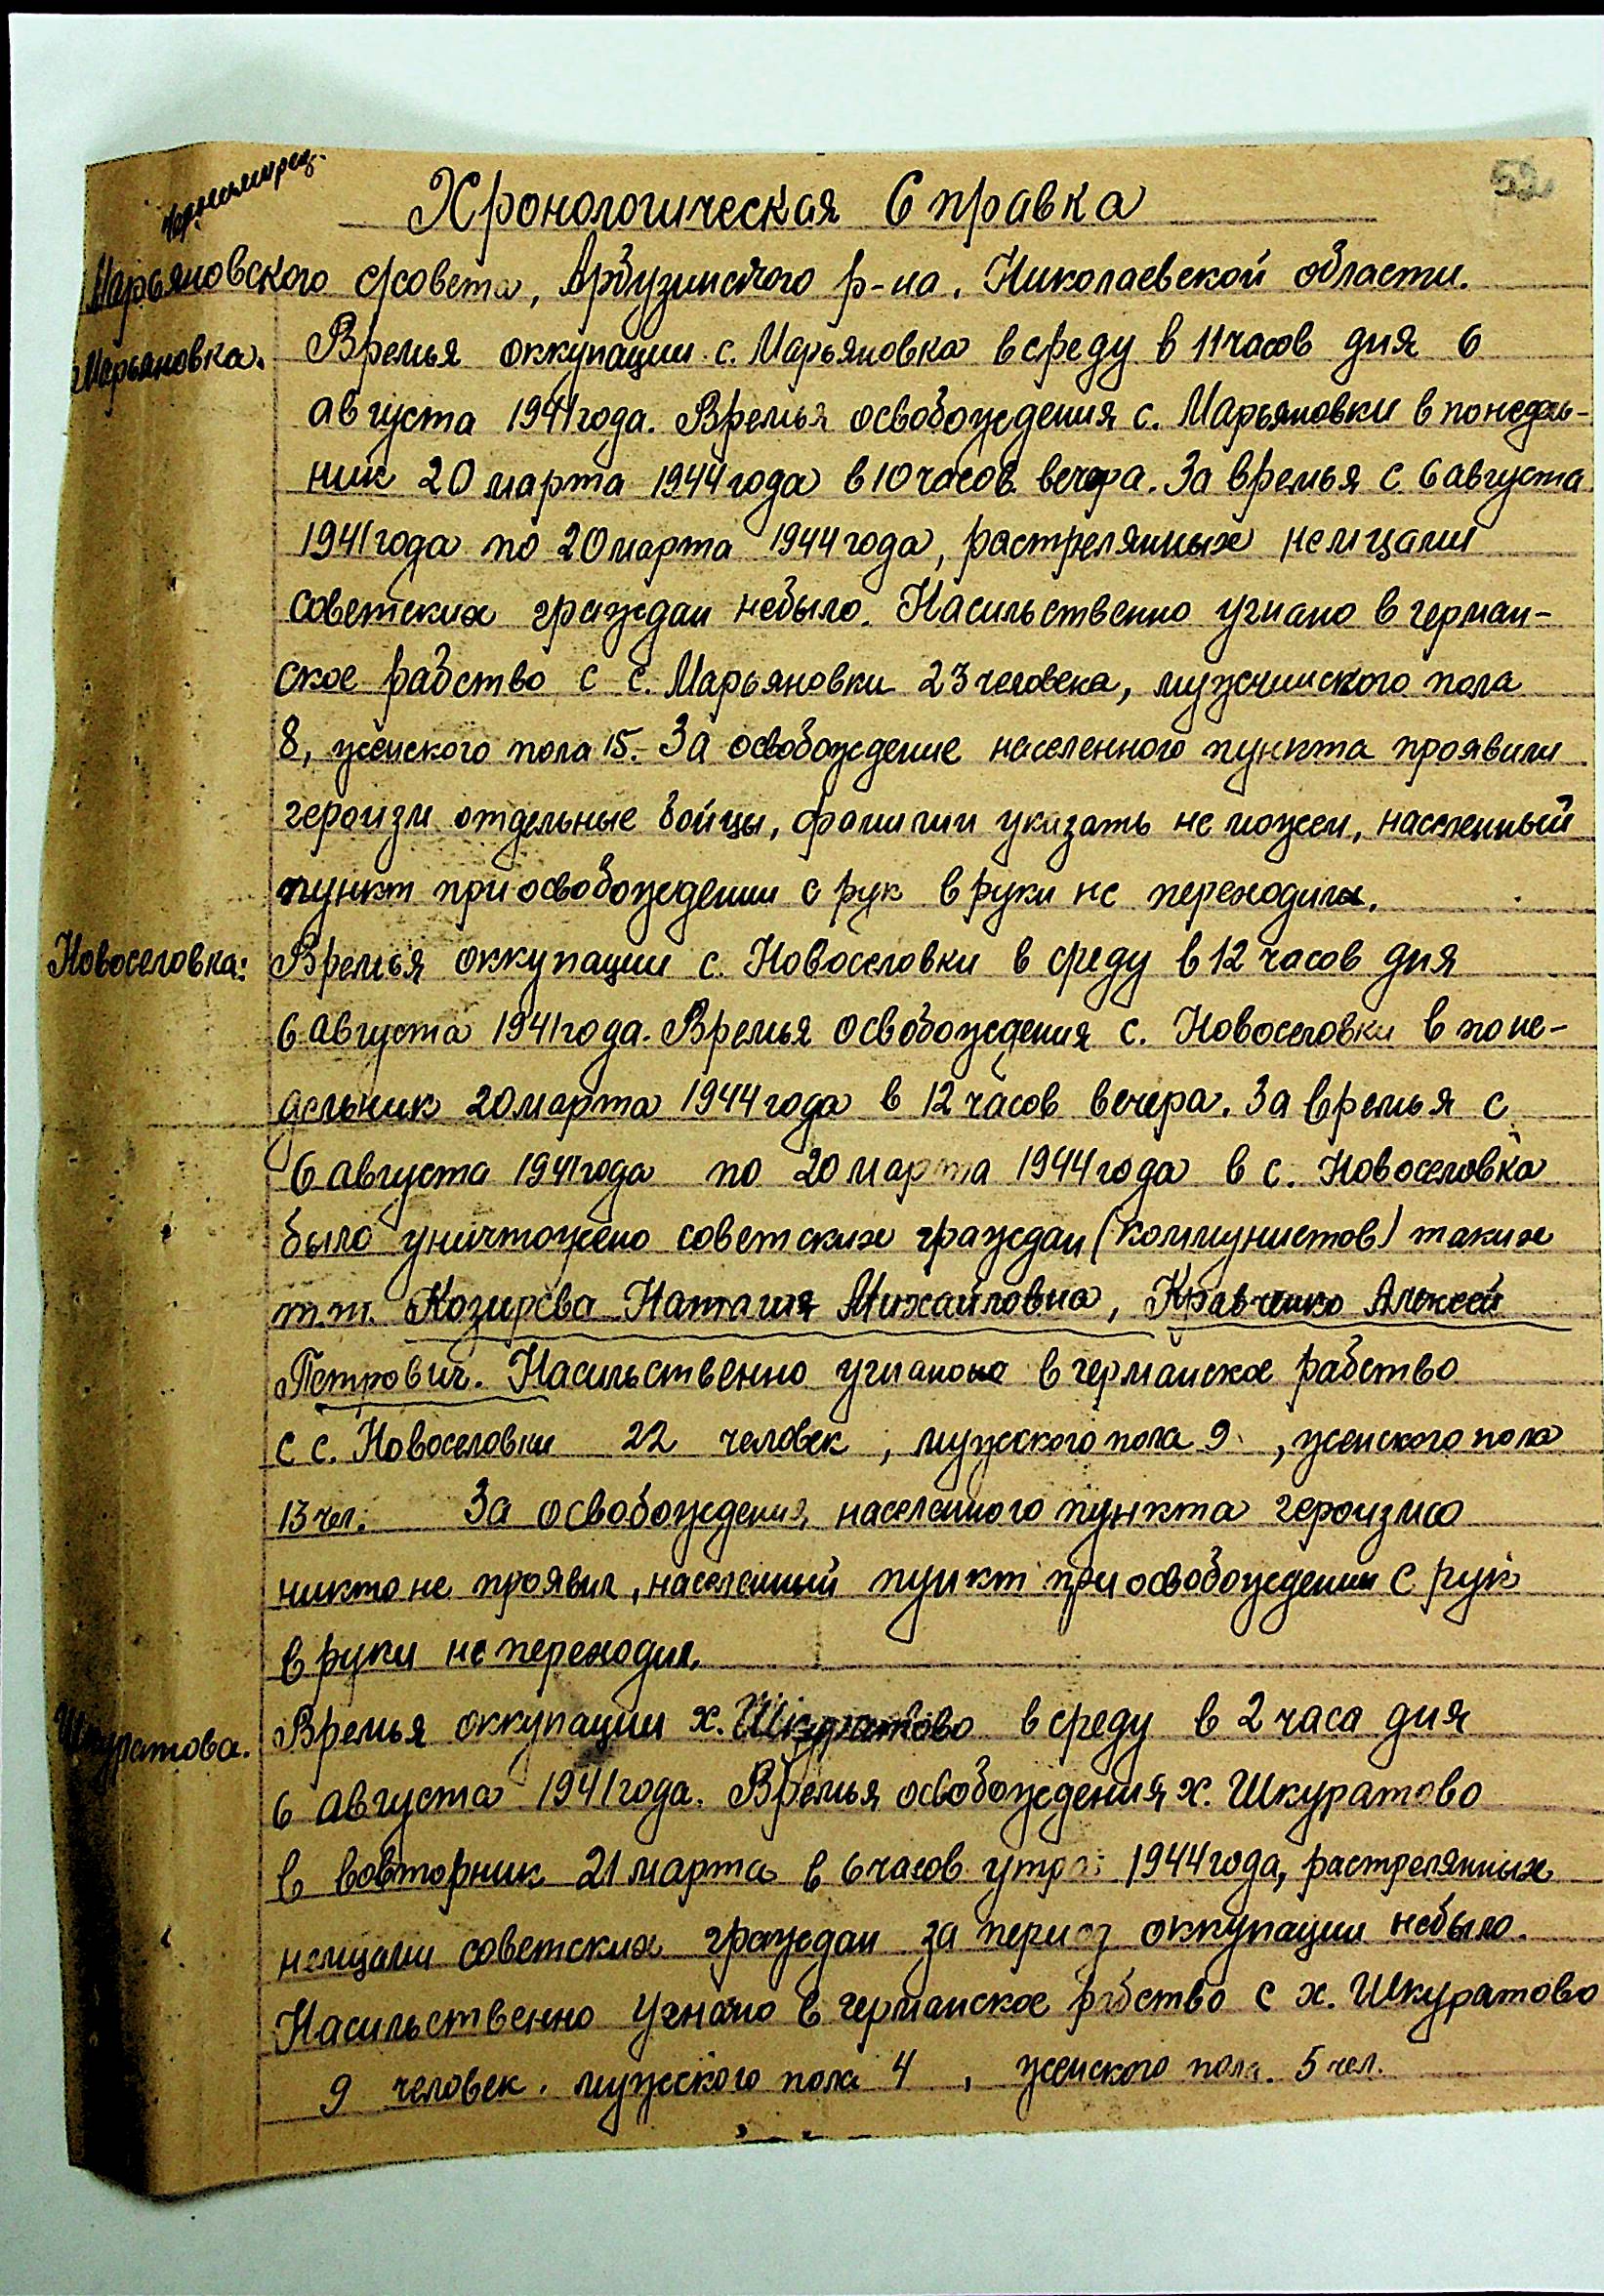 52
Хронологическая Справка
Марьяновского с/совета, Арбузинского р-на, Николаевской области.
Марьяновка. Времья оккупации с. Марьяновка в среду в 11 часов дня 6
августа 1941 года. Времья освобождения с. Марьяновки в понедель-
ник 20 марта 1944 года в 10 часов вечера. За времья с 6 августа
1941 года по 20 марта 1944 года, растрелянных немцами
советских граждан небыло. Насильственно угнано в герман-
ское рабство с с. Марьяновки 23 человека, мужчинского пола
8, женского пола 15. За освобождение населенного пункта проявили
героизм отдельные бойцы, фамилии указать не можем, населенный
пункт при освобождении с рук в руки не переходил.
Новоселовка: Времья оккупации с. Новоселовки в среду в 12 часов дня
6 августа 1941 года. Времья освобождения с. Новоселовки в поне-
дельник 20 марта 1944 года в 12 часов вечера. За времья с
6 августа 1941 года по 20 марта 1944 года в с. Новоселовка
было уничтожено советских граждан (коммунистов) таких
т.т. Козирева Наталия Михайловна, Кравченко Алексей
Петрович. Насильственно угнано в германское рабство
с с. Новоселовки 22 человек, мужского пола 9, женского пола
13 чел. За освобождения населенного пункта героизма
никто не проявил, населенный пункт при освобождении с рук
в руки не переходил.
Шкуратова. Времья оккупации х. Шкуратово в среду в 2 часа дня
6 августа 1941 года. Времья освобождения х. Шкуратово
в вовторник 21 марта в 6 часов утра 1944 года, растрелянных
немцами советских граждан за период оккупации небыло.
Насильственно угнано в германское рабство с х. Шкуратово
9 человек. мужского пола 4, женского пола. 5 чел.